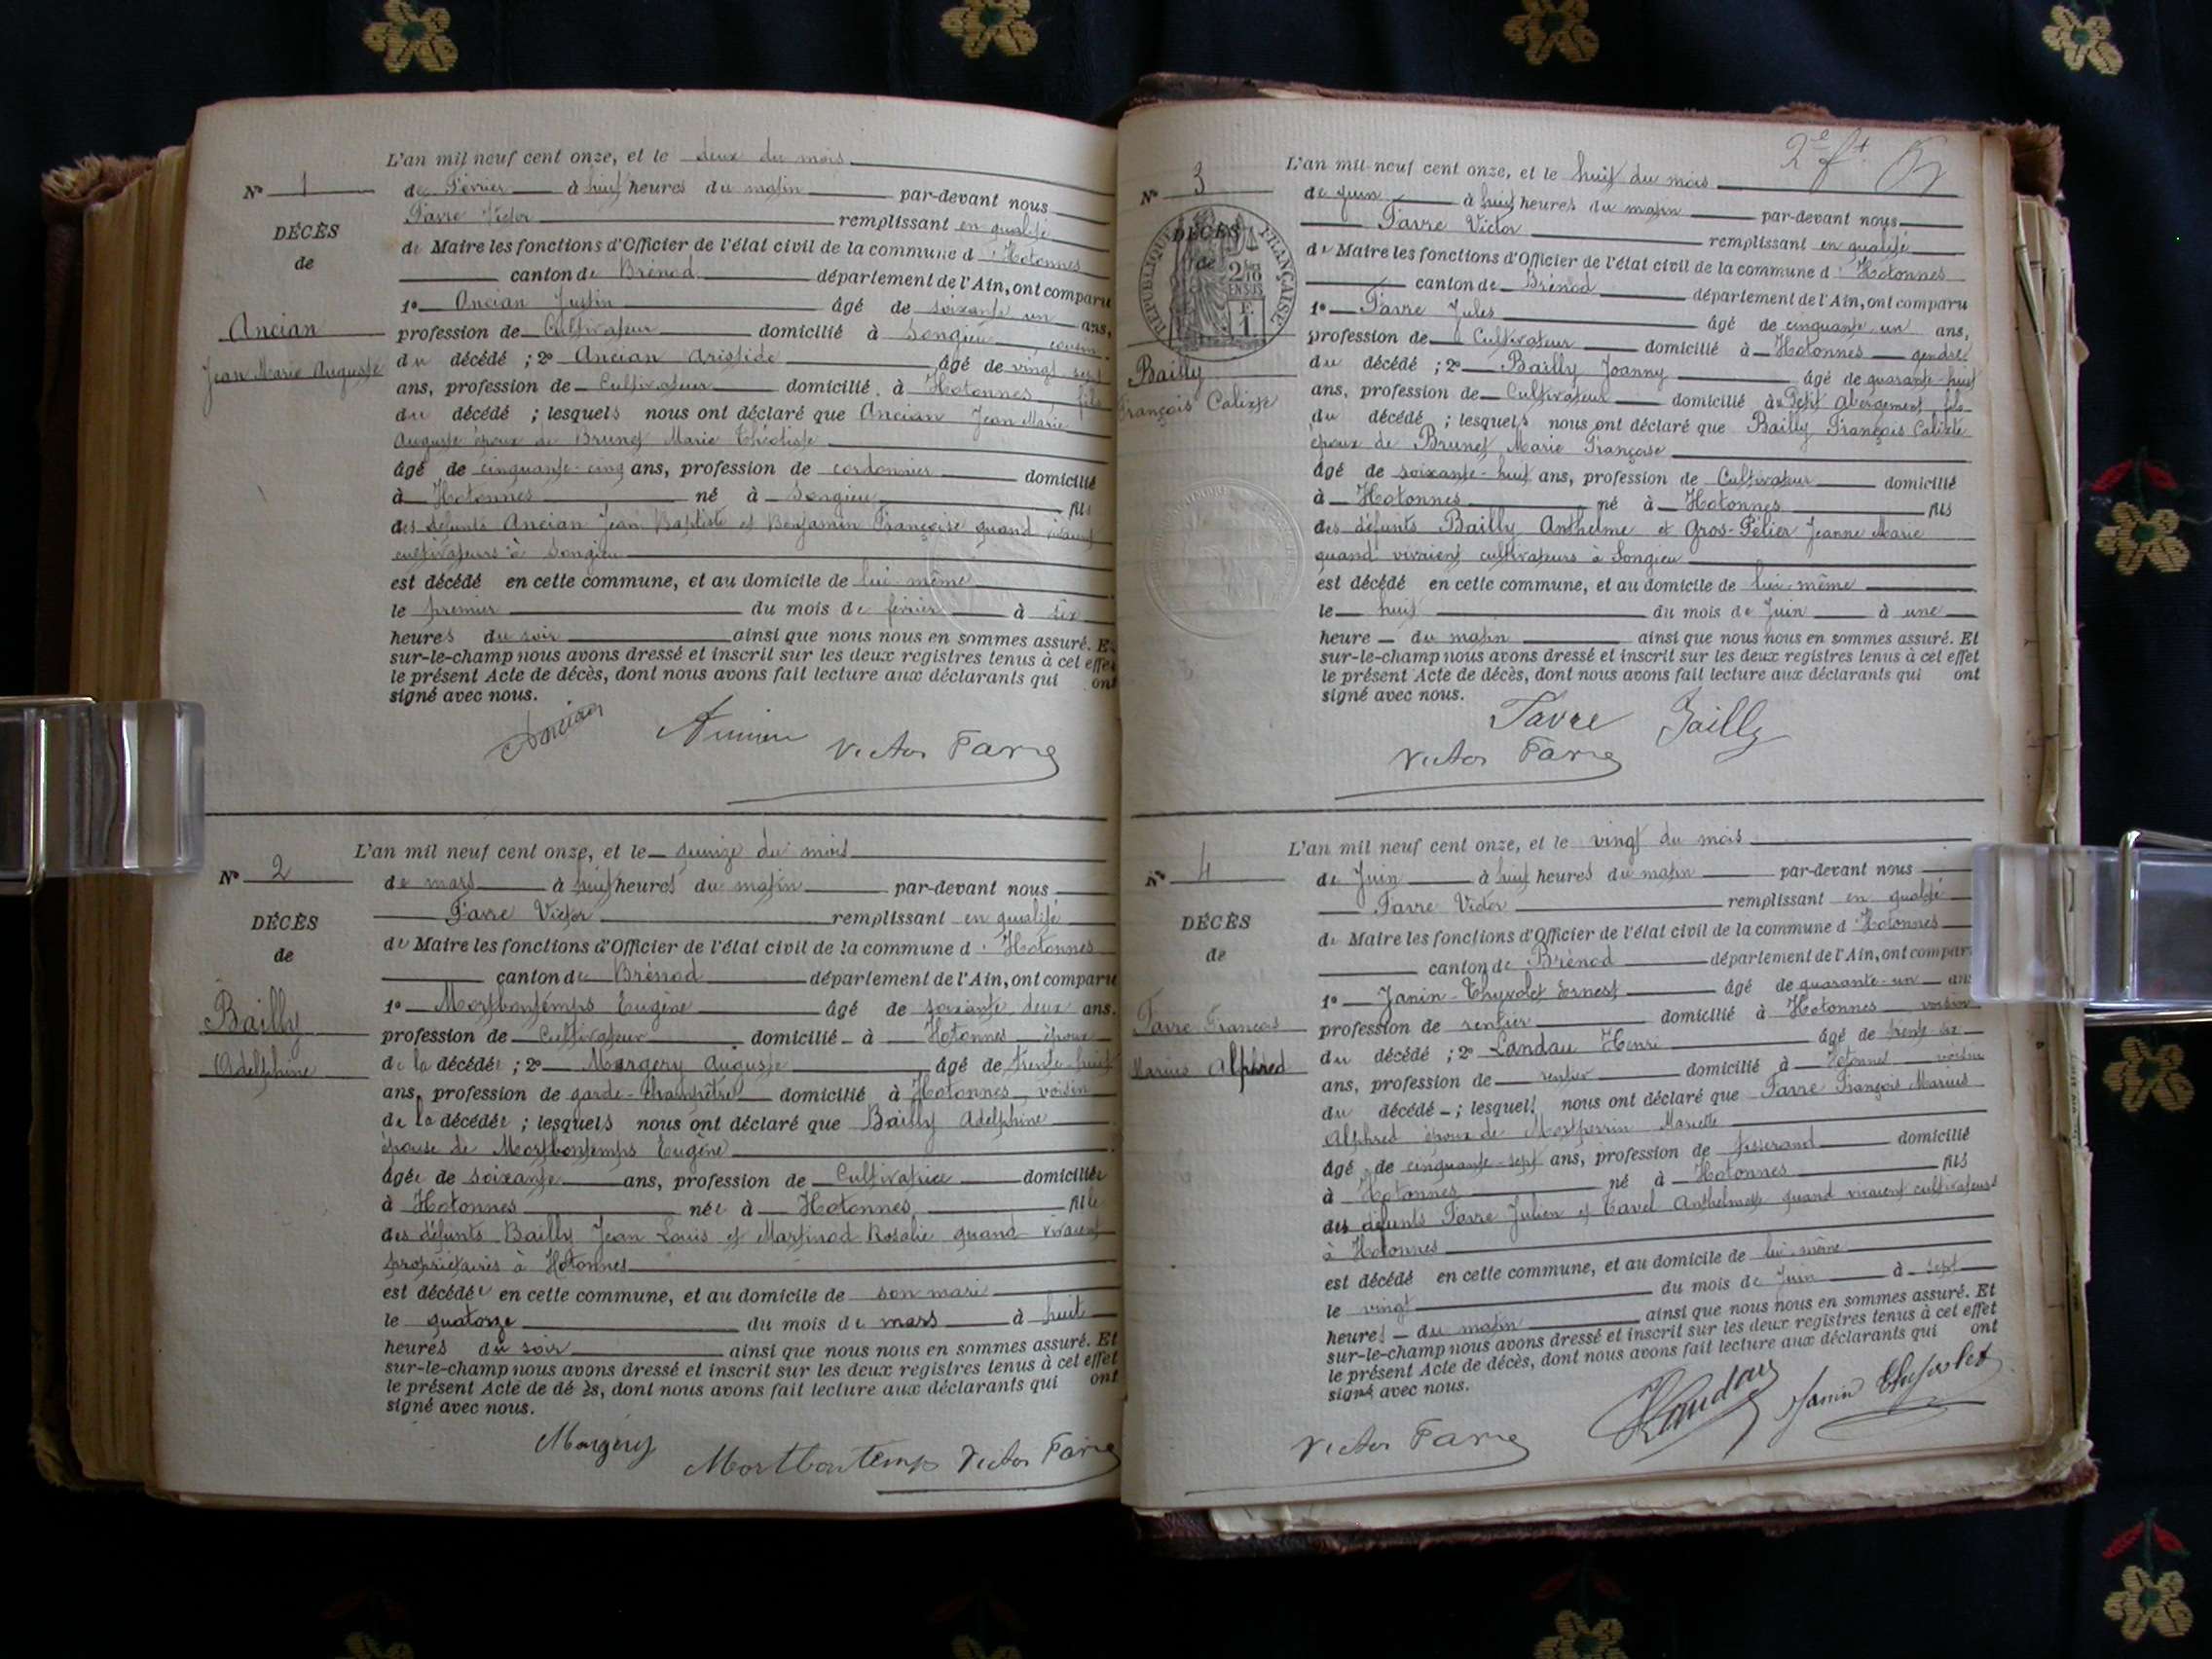 L'an mil neuf cent onze, et le deux du mois
N° 1
de Février à huit heures du matin par-devant nous
Favre Victor remplissant en qualité
DÉCÈS
de Maire les fonctions d'Officier de l'état civil de la commune d'Hotonnes
de
canton de Brénod département de l'Ain, ont comparu
1° Ancian Justin âgé de soixante un ans,
Ancian
profession de Cultivateur domicilié à Songieu, cousin
Jean Marie Auguste
du décédé ; 2° Ancian Aristide âgé de vingt sept
ans, profession de Cultivateur domicilié à Hotonnes, fils
du décédé ; lesquels nous ont déclaré que Ancian Jean Marie
Auguste époux de Brunet Marie Théotiste
âgé de cinquante-cinq ans, profession de cordonnier domicilié
à Hotonnes né à Songieu fils
des défunts Ancian Jean Baptiste et Benjamin Françoise quand vivaient
cultivateurs à Songieu
est décédé en cette commune, et au domicile de lui-même
le premier du mois de février à six
heures du soir ainsi que nous nous en sommes assuré. Et
sur-le-champ nous avons dressé et inscrit sur les deux registres tenus à cet effet
le présent Acte de décès, dont nous avons fait lecture aux déclarants qui ont
signé avec nous.
Ancian Victor Favre
L'an mil neuf cent onze, et le quinze du mois
N° 2
de mars à huit heures du matin par-devant nous
Favre Victor remplissant en qualité
DÉCÈS
de Maire les fonctions d'Officier de l'état civil de la commune d'Hotonnes
de
canton de Brénod département de l'Ain, ont comparu
1° Mortbontemps Eugène âgé de soixante deux ans.
Bailly
profession de Cultivateur domicilié à Hotonnes époux
Adelphine
de la décédée ; 2° Margery Auguste âgé de trente-huit
ans, profession de garde-champêtre domicilié à Hotonnes, voisin
de la décédée ; lesquels nous ont déclaré que Bailly Adelphine
épouse de Mortbontemps Eugène
âgée de soixante ans, profession de Cultivatrice domiciliée
à Hotonnes née à Hotonnes fille
des défunts Bailly Jean Louis et Martinod Rosalie quand vivaient
propriétaires à Hotonnes
est décédée en cette commune, et au domicile de son mari
le quatorze du mois de mars à huit
heures du soir ainsi que nous nous en sommes assuré. Et
sur-le-champ nous avons dressé et inscrit sur les deux registres tenus à cet effet
le présent Acte de dé ès, dont nous avons fait lecture aux déclarants qui ont
signé avec nous.
Margery Mortbontemps Victor Favre
2e ft
L'an mil neuf cent onze, et le huit du mois
N° 3
de juin à huit heures du matin par-devant nous
Favre Victor remplissant en qualité
DÉCÈS
de Maire les fonctions d'Officier de l'état civil de la commune d'Hotonnes
de
RÉPUBLIQUE FRANÇAISE
2/10 EN SUS
F. 1
canton de Brénod département de l'Ain, ont comparu
1° Favre Jules âgé de cinquante un ans,
profession de Cultivateur domicilié à Hotonnes gendre
Bailly
François Calixte
du décédé ; 2° Bailly Joanny âgé de quarante-huit
ans, profession de Cultivateur domicilié à Petit Abergement fils
du décédé ; lesquels nous ont déclaré que Bailly François Calixte
époux de Brunet Marie Françoise
âgé de soixante-huit ans, profession de Cultivateur domicilié
à Hotonnes né à Hotonnes fils
des défunts Bailly Anthelme et Gros-Pélier Jeanne Marie
quand vivaient cultivateurs à Songieu
est décédé en cette commune, et au domicile de lui-même
le huit du mois de Juin à une
heure du matin ainsi que nous nous en sommes assuré. Et
sur-le-champ nous avons dressé et inscrit sur les deux registres tenus à cet effet
le présent Acte de décès, dont nous avons fait lecture aux déclarants qui ont
signé avec nous.
Favre Bailly
Victor Favre
L'an mil neuf cent onze, et le vingt du mois
N° 4
de Juin à huit heures du matin par-devant nous
Favre Victor remplissant en qualité
DÉCÈS
de Maire les fonctions d'Officier de l'état civil de la commune d'Hotonnes
de
canton de Brénod département de l'Ain, ont compar
1° Janin-Thyvolet Ernest âgé de quarante-un ans
Favre François
profession de rentier domicilié à Hotonnes voisin
Marius Alphred
du décédé ; 2° Landau Henri âgé de trente-six
ans, profession de rentier domicilié à Hotonnes voisin
du décédé ; lesquels nous ont déclaré que Favre François Marius
Alphred époux de Montperrin Mariette
âgé de cinquante-sept ans, profession de tisserand domicilié
à Hotonnes né à Hotonnes fils
des défunts Favre Julien et Tavel Anthelmette quand vivaient cultivateurs
à Hotonnes
est décédé en cette commune, et au domicile de lui-même
le vingt du mois de Juin à sept
heures du matin ainsi que nous nous en sommes assuré. Et
sur-le-champ nous avons dressé et inscrit sur les deux registres tenus à cet effet
le présent Acte de décès, dont nous avons fait lecture aux déclarants qui ont
signé avec nous.
Victor Favre HLandau Janin Thyvolet